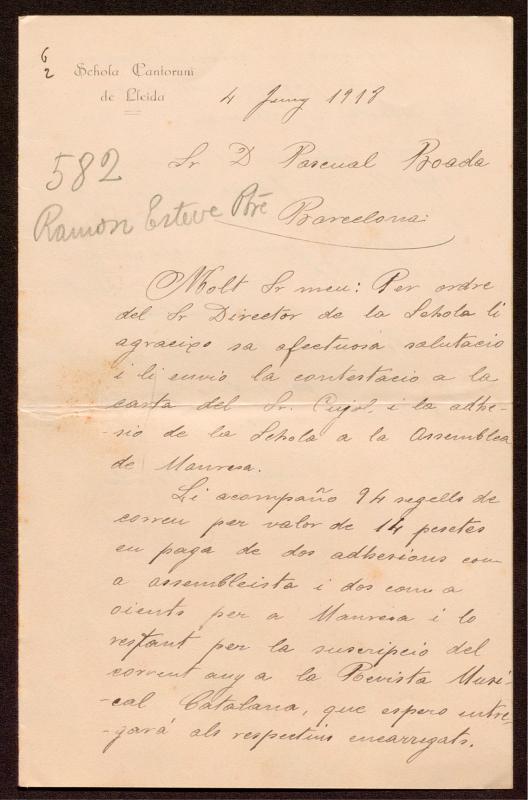 6
2
Schola Cantorum
de Lleida
4 Juny 1918
582
Ramón Esteve Pbre
Sr D Pascual Boada
Barcelona:
Molt Sr meu: Per ordre
del Sr Director de la Schola li
agraeixo sa afectuosa salutacio
i li envio la contestacio a la
carta del Sr. Pujol, i la adhe-
-sio de la Schola a la Assemblea
de Manresa.
Li acompaño 94 segells de
correu per valor de 14 pesetes
en paga de dos adhesions com
a assembleista i dos com a
oients per a Manresa i lo
restant per la suscripcio del
corrent any a la Revista Musi-
-cal Catalana, que espero entre-
-gará als respectius encarregats.